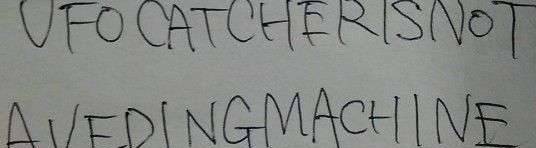 UFO CATCHER IS NOT
A VEDING MACHINE